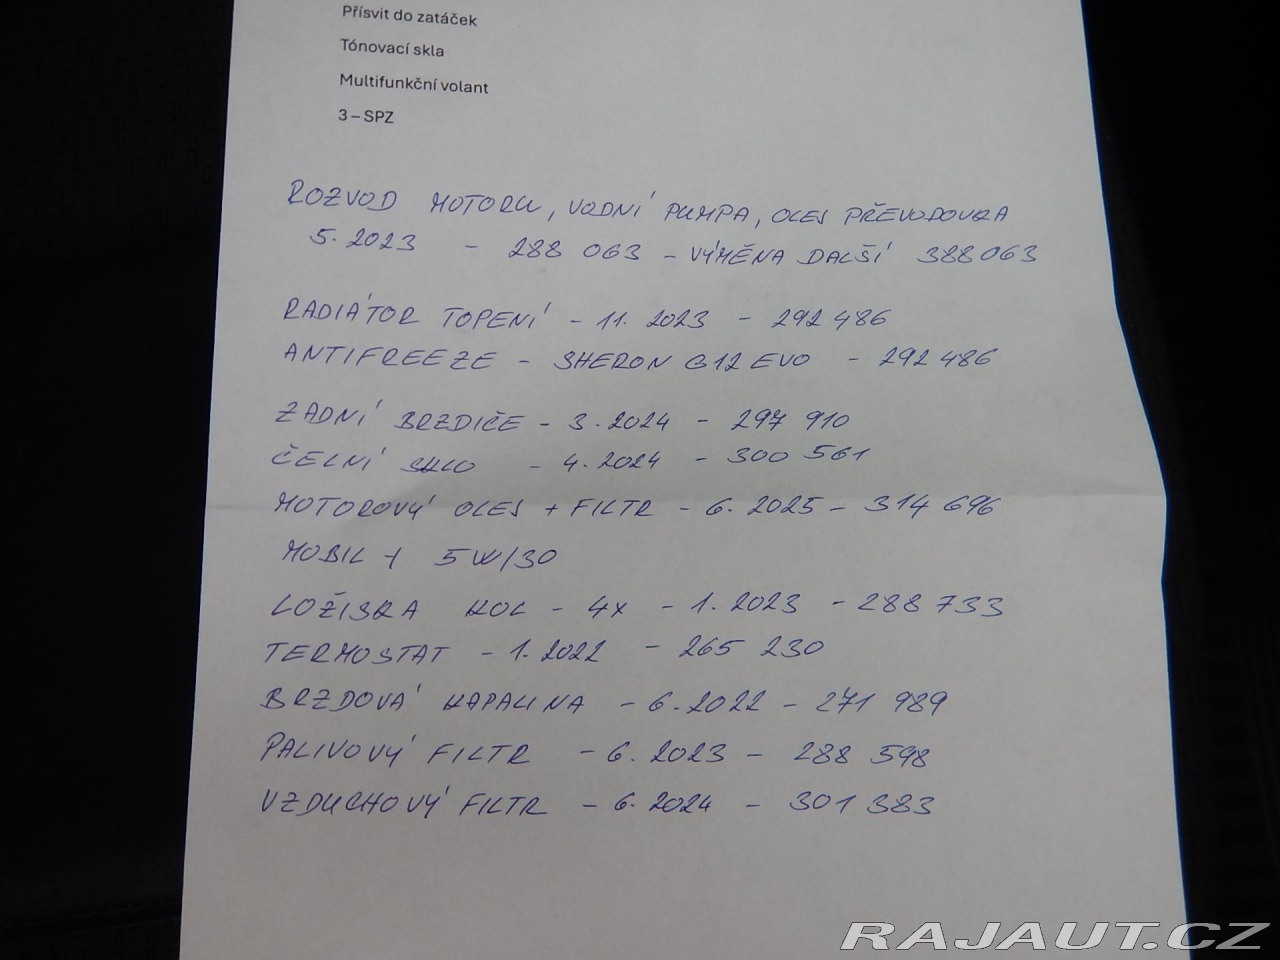 Přísvit do zatáček
Tónovací skla
Multifunkční volant
3 – SPZ
ROZVOD MOTORU, VODNÍ PUMPA, OLEJ PŘEVODOVKA
5. 2023 - 288 063 - VÝMĚNA DALŠÍ 388 063
RADIÁTOR TOPENÍ - 11. 2023 - 292 486
ANTIFREEZE - SHERON G12 EVO - 292 486
ZADNÍ BRZDIČE - 3. 2024 - 297 910
ČELNÍ SKLO - 4. 2024 - 300 561
MOTOROVÝ OLEJ + FILTR - 6. 2025 - 314 696
MOBIL 1 5W/30
LOŽISKA KOL - 4x - 1. 2023 - 288 733
TERMOSTAT - 1. 2022 - 265 230
BRZDOVÁ KAPALINA - 6. 2022 - 271 989
PALIVOVÝ FILTR - 6. 2023 - 288 598
VZDUCHOVÝ FILTR - 6. 2024 - 301 383
RAJAUT.CZ